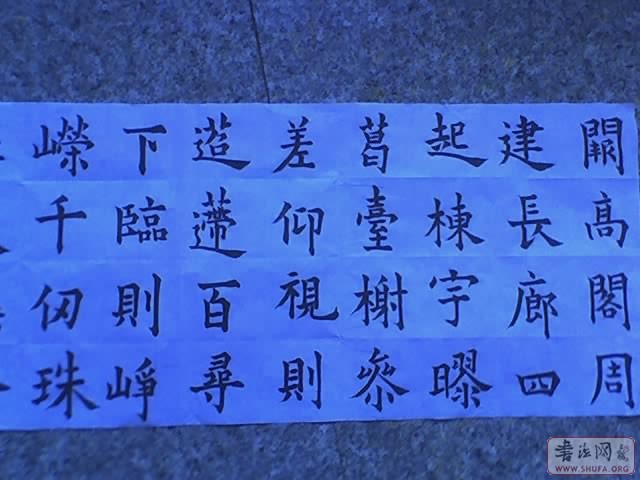 闕高閣周
建長廊四
起棟宇膠
葛臺榭參
差仰視則
迢遰百尋
下臨則崢
嶸千仞珠
书法网
WWW.SHUFA.ORG